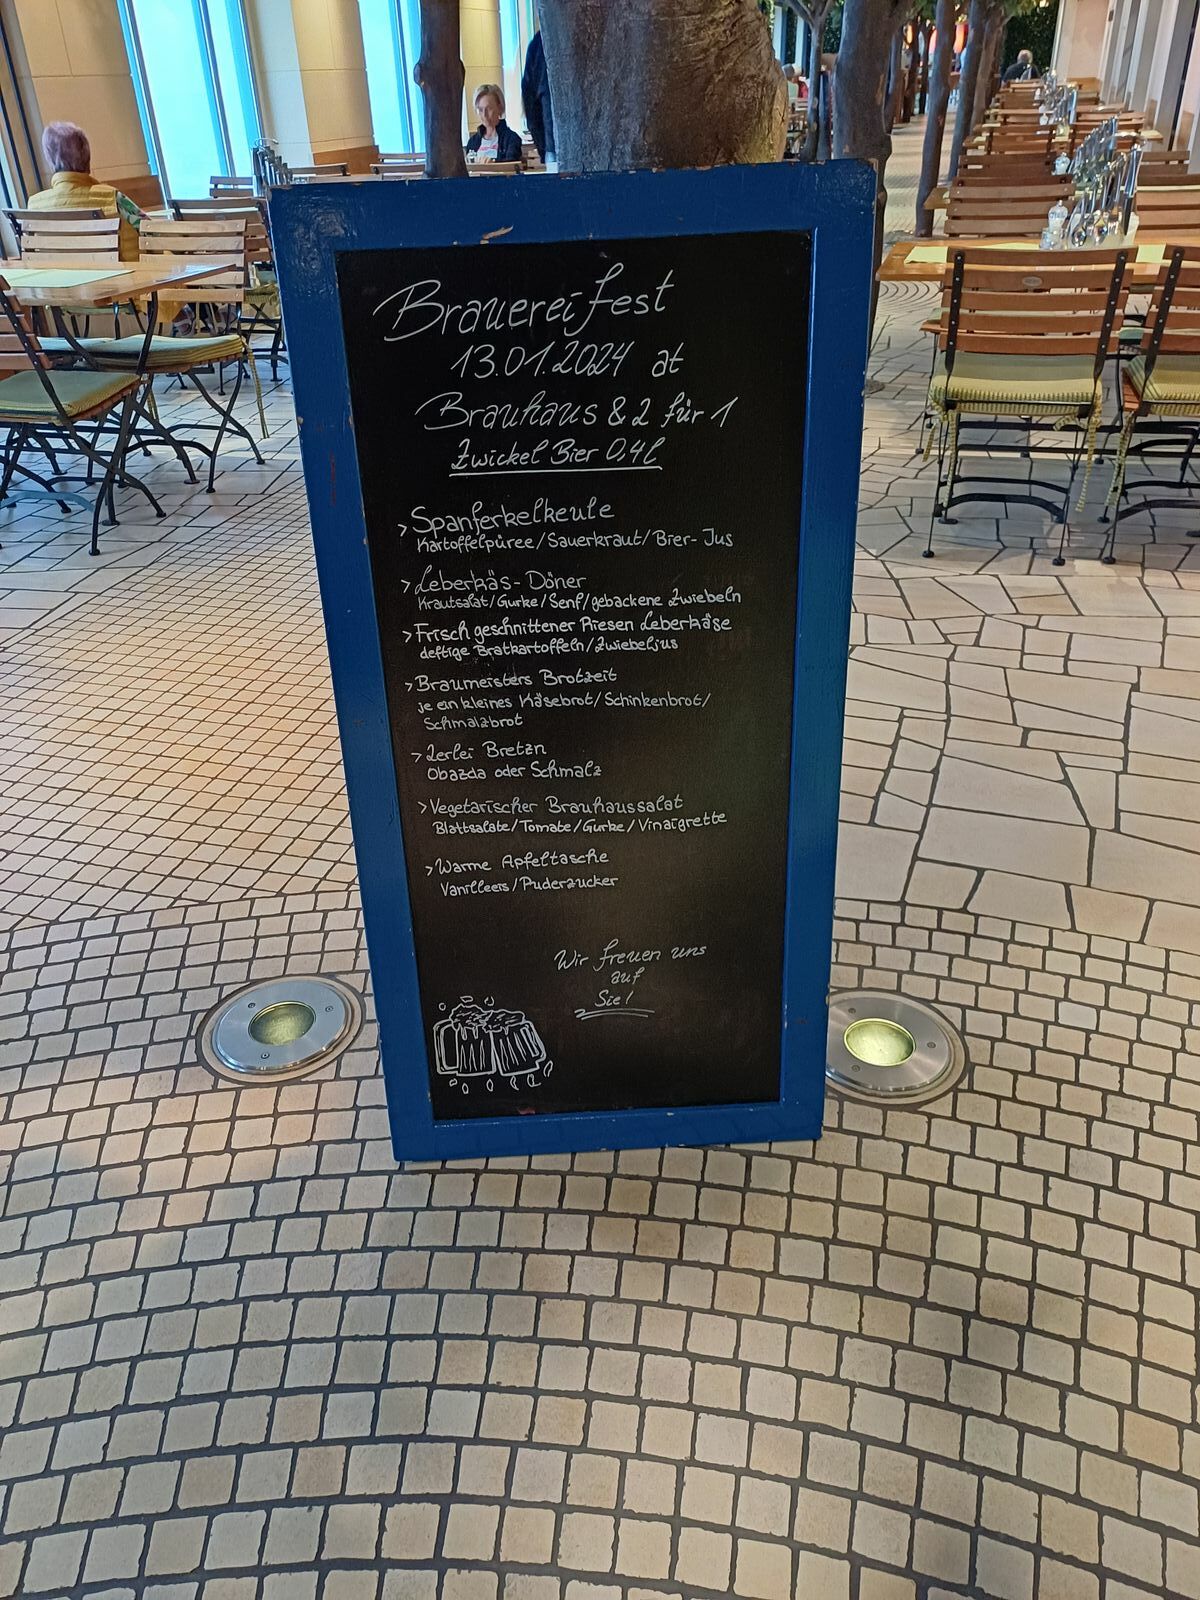 Brauereifest
13.01.2024 at
Brauhaus & 2 für 1
Zwickel Bier 0,4l
> Spanferkelkeule
Kartoffelpüree/Sauerkraut/Bier-Jus
> Leberkäs-Döner
Krautsalat/Gurke/Senf/gebackene Zwiebeln
> Frisch geschnittener Riesen Leberkäse
deftige Bratkartoffeln/Zwiebeljus
> Braumeisters Brotzeit
je ein kleines Käsebrot/Schinkenbrot/
Schmalzbrot
> 2erlei Bretzn
Obazda oder Schmalz
> Vegetarischer Brauhaussalat
Blattsalate/Tomate/Gurke/Vinaigrette
> Warme Apfeltasche
Vanilleeis/Puderzucker
Wir freuen uns
auf
Sie!